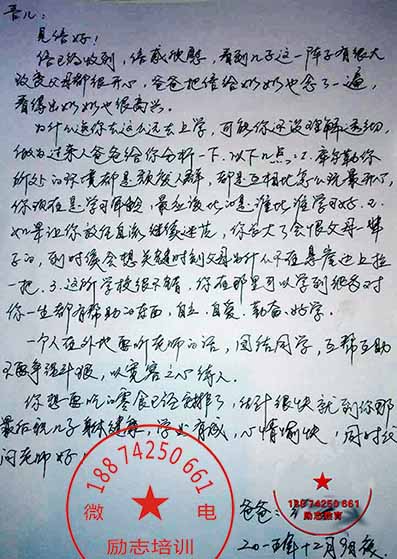 吾儿：
见信好！
信已经收到，信感欣慰，看到儿子这一阵子有很大
改变父母都很开心，爸爸把信给奶奶也念了一遍，
看得出奶奶也很高兴。
为什么送你去这么远去上学，可能你还没理解透彻，
做为过来人爸爸给你分析一下。以下几点：1.
所处的环境都是颓废人群，都是互相比怎么玩最开心，
你现在是学习年龄，最应该比的是谁比谁学习好。2.
如果让你放任自流继续迷茫，你长大了会恨父母一辈
子的，到时候会想关键时刻父母为什么不在悬崖边上拉
一把。3.这所学校很不错，你在那里可以学到很多对
你一生都有帮助的东西，自立、自爱、勤奋、好学。
一个人在外地要听老师的话，团结同学，互帮互助
不要争强斗狠，以宽容之心待人。
你想要吃的零食已经邮了，估计很快就到你那
最后祝儿子身体健康，学业有成，心情愉快，同时代
问老师好！
爸爸：
二〇一五年十二月9日夜
18874250661
微 电
励志培训
18874250661
励志教育